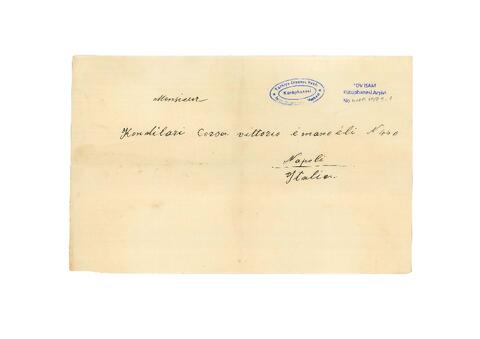 Türkiye Diyanet Vakfı
Kütüphanesi
TDV İSAM
Kütüphanesi Arşivi
No
Monsieur
Kondilari Corso vittorio émanoéli N 440
Napoli
Italia